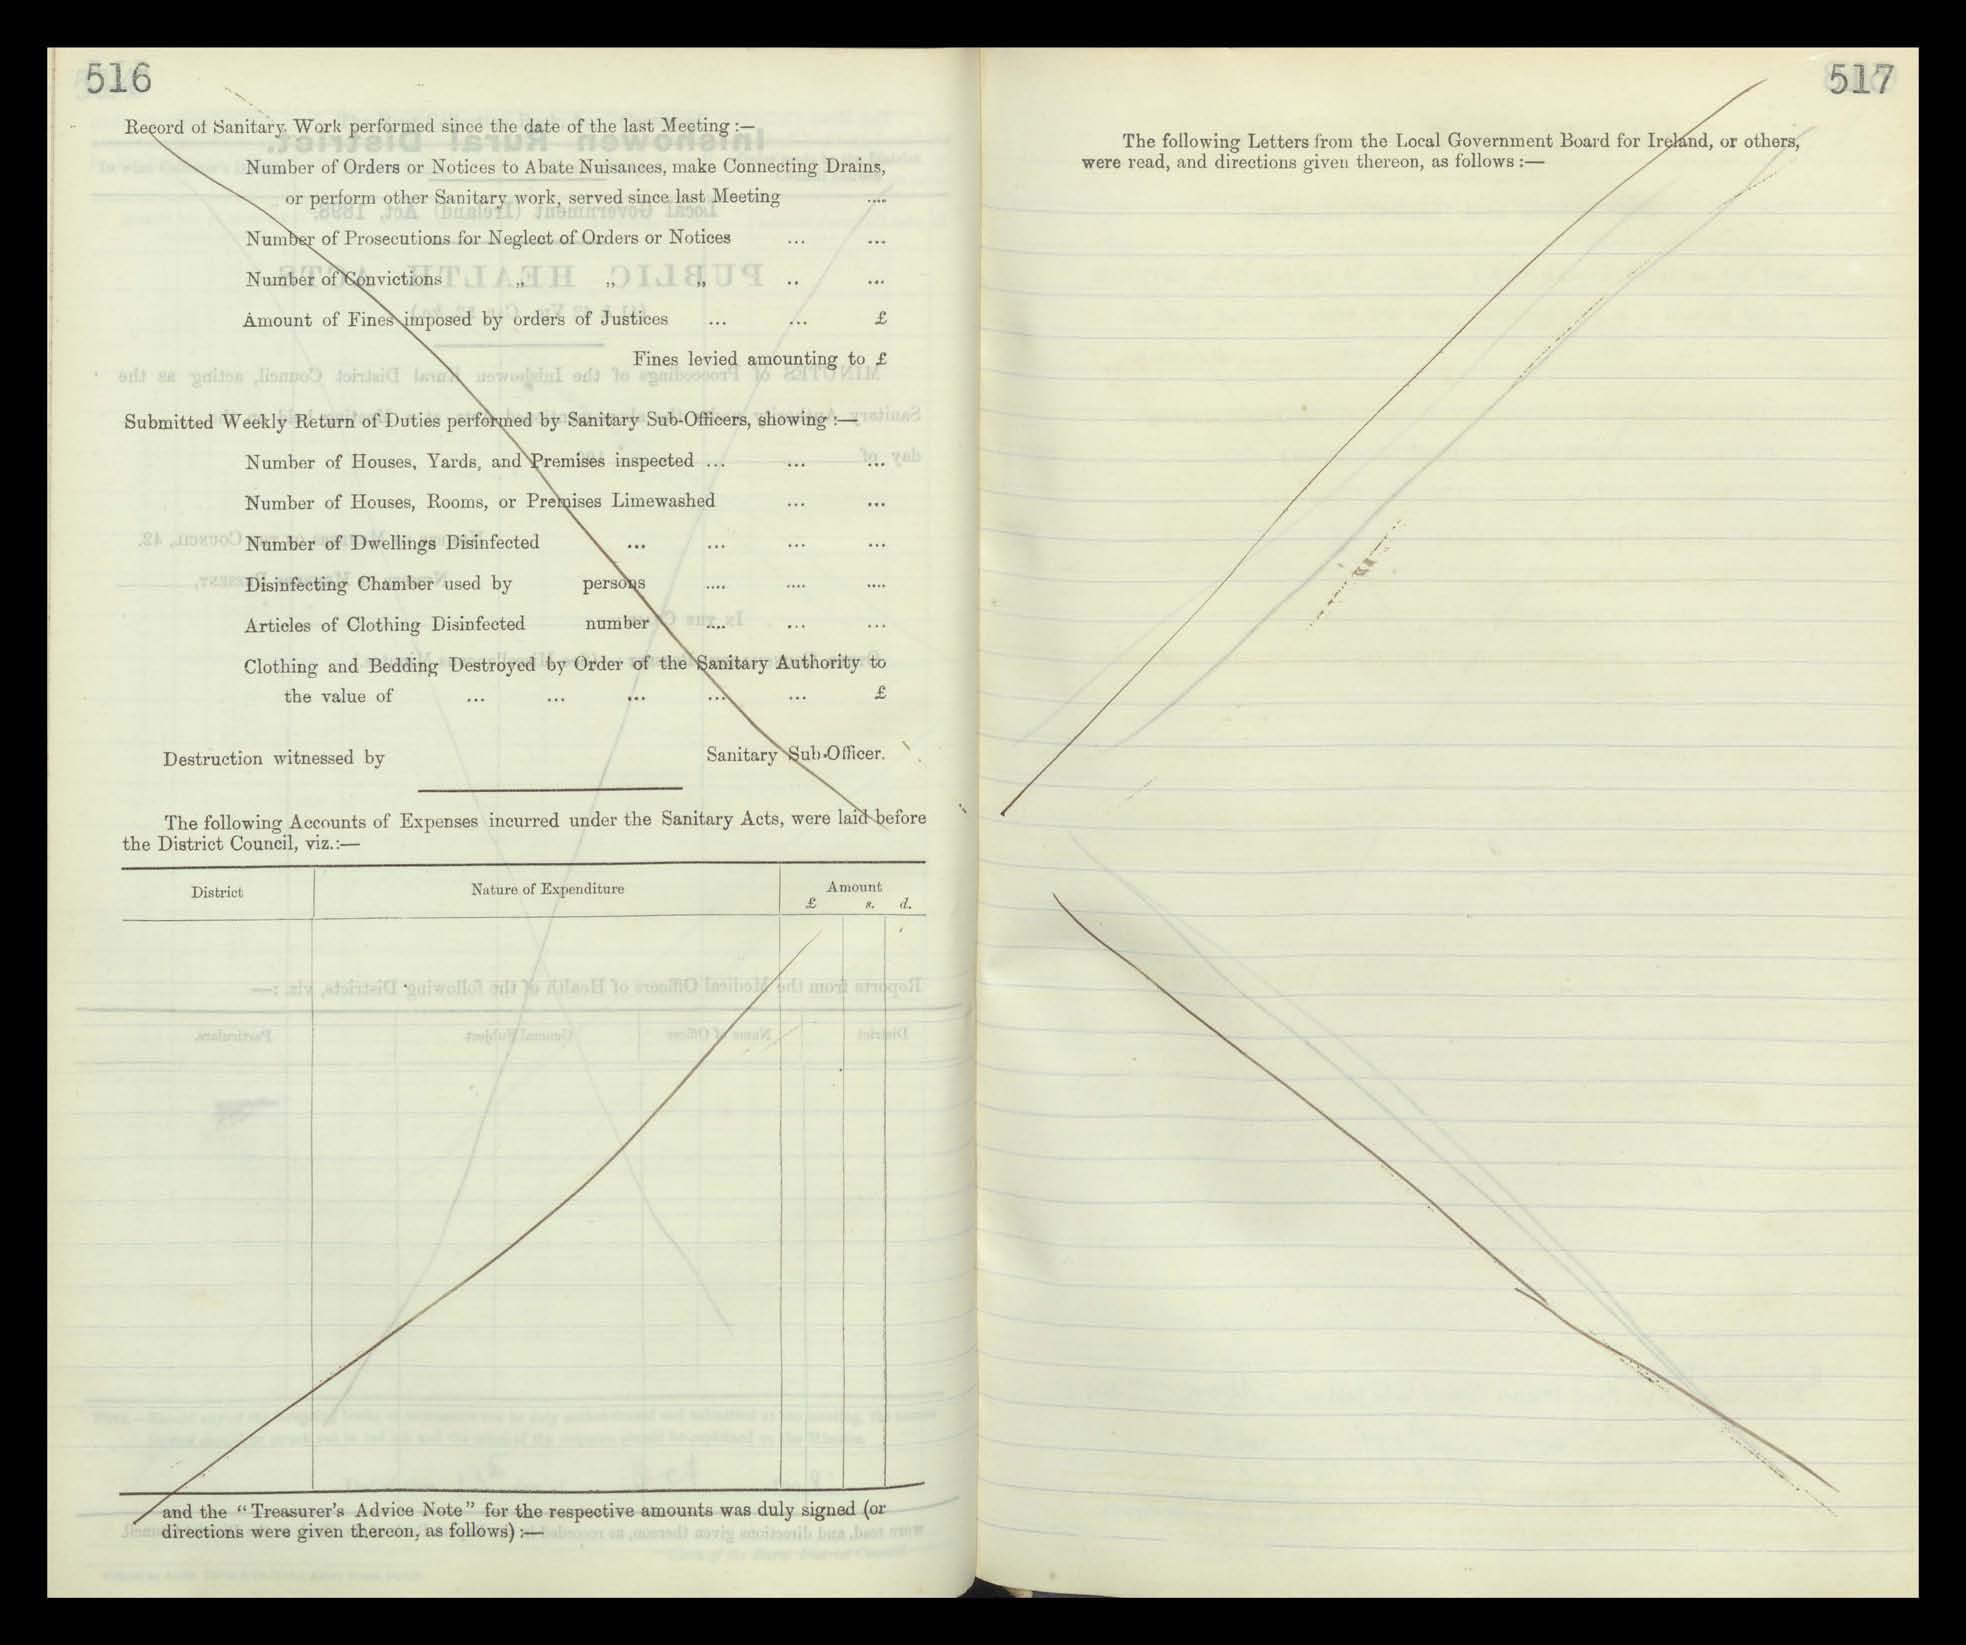 516
Record of Sanitary Work performed since the date of the last Meeting :—
Number of Orders or Notices to Abate Nuisances, make Connecting Drains,
or perform other Sanitary work, served since last Meeting ....
Number of Prosecutions for Neglect of Orders or Notices ... ...
Number of Convictions „ „ „ .. ...
Amount of Fines imposed by orders of Justices ... ... £
Fines levied amounting to £
Submitted Weekly Return of Duties performed by Sanitary Sub-Officers, showing :—
Number of Houses, Yards, and Premises inspected ... ... ...
Number of Houses, Rooms, or Premises Limewashed ... ...
Number of Dwellings Disinfected ... ... ... ...
Disinfecting Chamber used by persons .... .... ....
Articles of Clothing Disinfected number .... ... ...
Clothing and Bedding Destroyed by Order of the Sanitary Authority to
the value of ... ... ... ... ... £
Destruction witnessed by Sanitary Sub-Officer.
The following Accounts of Expenses incurred under the Sanitary Acts, were laid before
the District Council, viz.:—
District Nature of Expenditure Amount
£ s. d.
and the “Treasurer's Advice Note” for the respective amounts was duly signed (or
directions were given thereon, as follows) :—
517
The following Letters from the Local Government Board for Ireland, or others,
were read, and directions given thereon, as follows :—